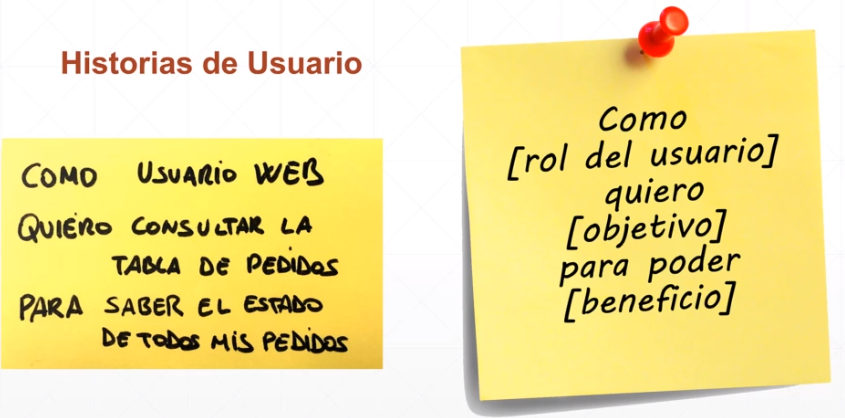 Historias de Usuario
COMO USUARIO WEB
QUIERO CONSULTAR LA
TABLA DE PEDIDOS
PARA SABER EL ESTADO
DE TODOS MIS PEDIDOS
Como
[rol del usuario]
quiero
[objetivo]
para poder
[beneficio]